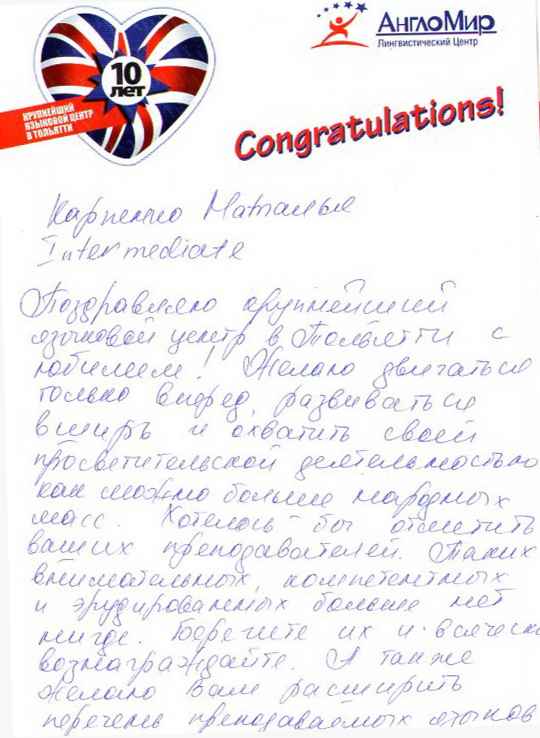 10
лет
КРУПНЕЙШИЙ
ЯЗЫКОВОЙ ЦЕНТР
В ТОЛЬЯТТИ
АнглоМир
Лингвистический Центр
Congratulations!
Карпенко Наталья
Intermediate
Поздравляю крупнейший
языковой центр в Тольятти с
юбилеем! Желаю двигаться
только вперед, развиваться
вширь и охватить своей
просветительской деятельностью
как можно больше народных
масс. Хотелось бы отметить
ваших преподавателей. Таких
внимательных, компетентных
и эрудированных больше нет
нигде. Берегите их и всячески
вознаграждайте. А также
желаю Вам расширить
перечень преподаваемых языков